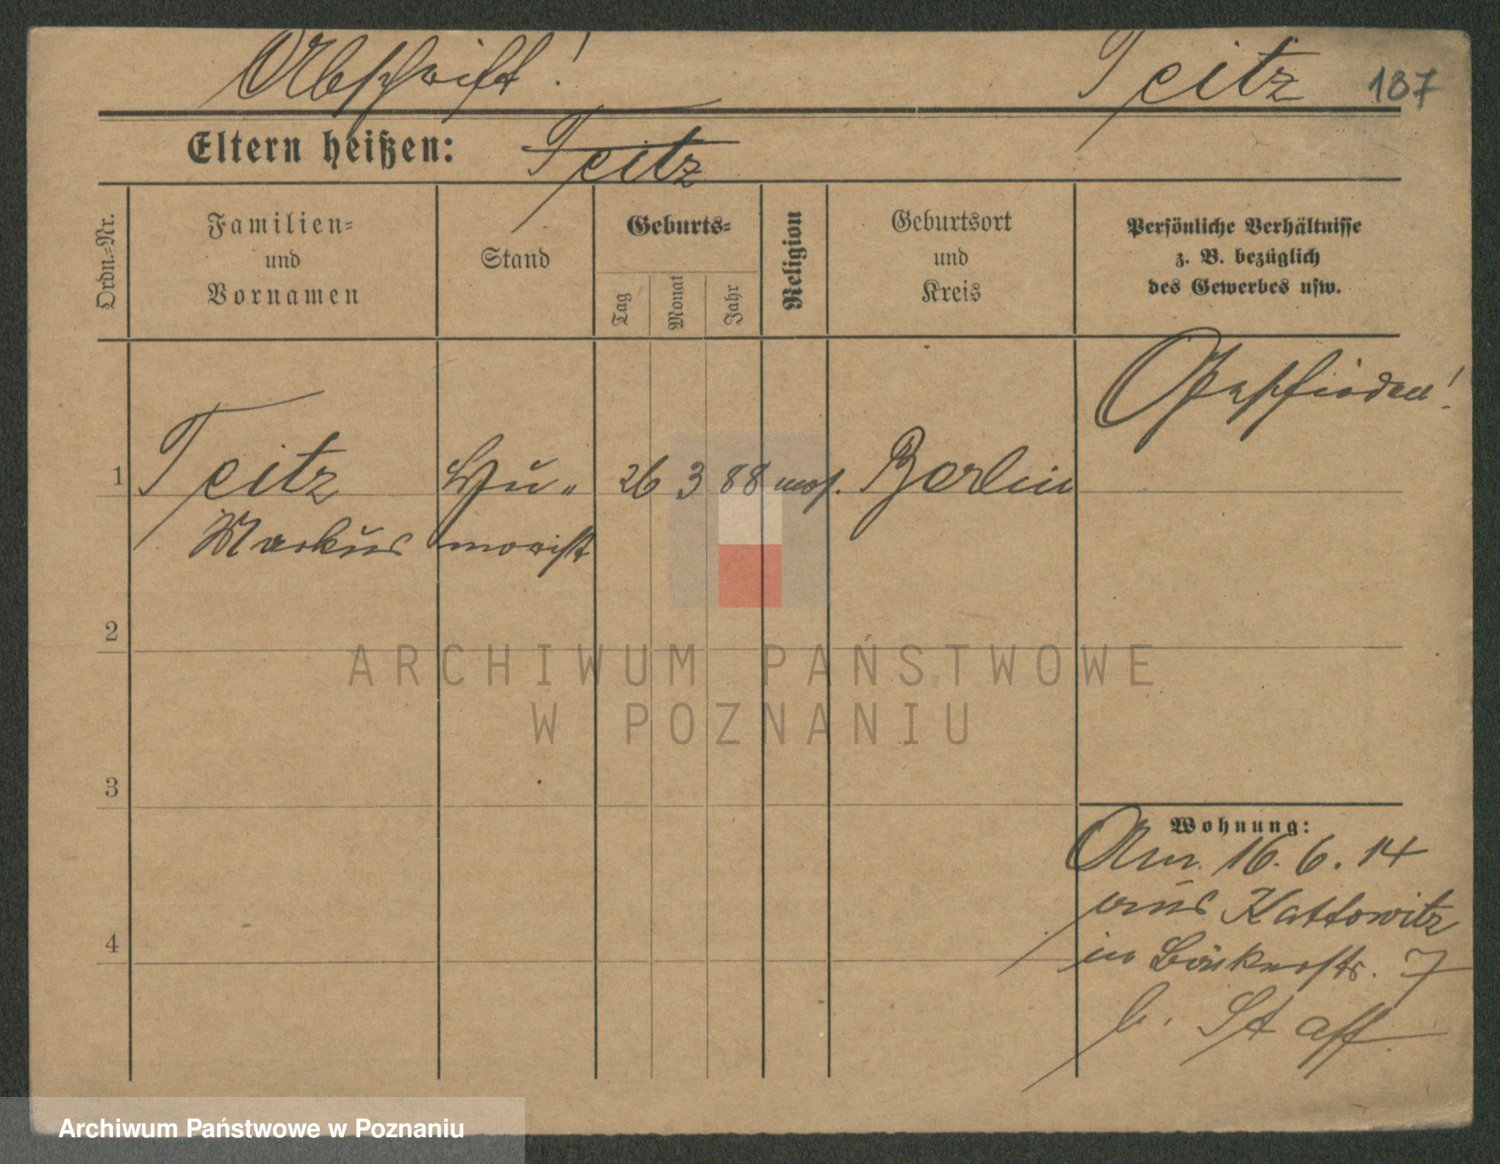 Abschrift! Teitz 187
Eltern heißen: Teitz
Ordn.-Nr.
Familien-
und
Vornamen
Stand
Geburts-
Tag
Monat
Jahr
Religion
Geburtsort
und
Kreis
Persönliche Verhältnisse
z. B. bezüglich
des Gewerbes usw.
Geschieden!
1 Teitz Hu- 26 3 88 mos. Berlin
Markus morist
2
3
4
Wohnung:
An. 16. 6. 14
aus Kattowitz
in Bäkerstr. 7
b. Staff
ARCHIWUM PAŃSTWOWE
W POZNANIU
Archiwum Państwowe w Poznaniu